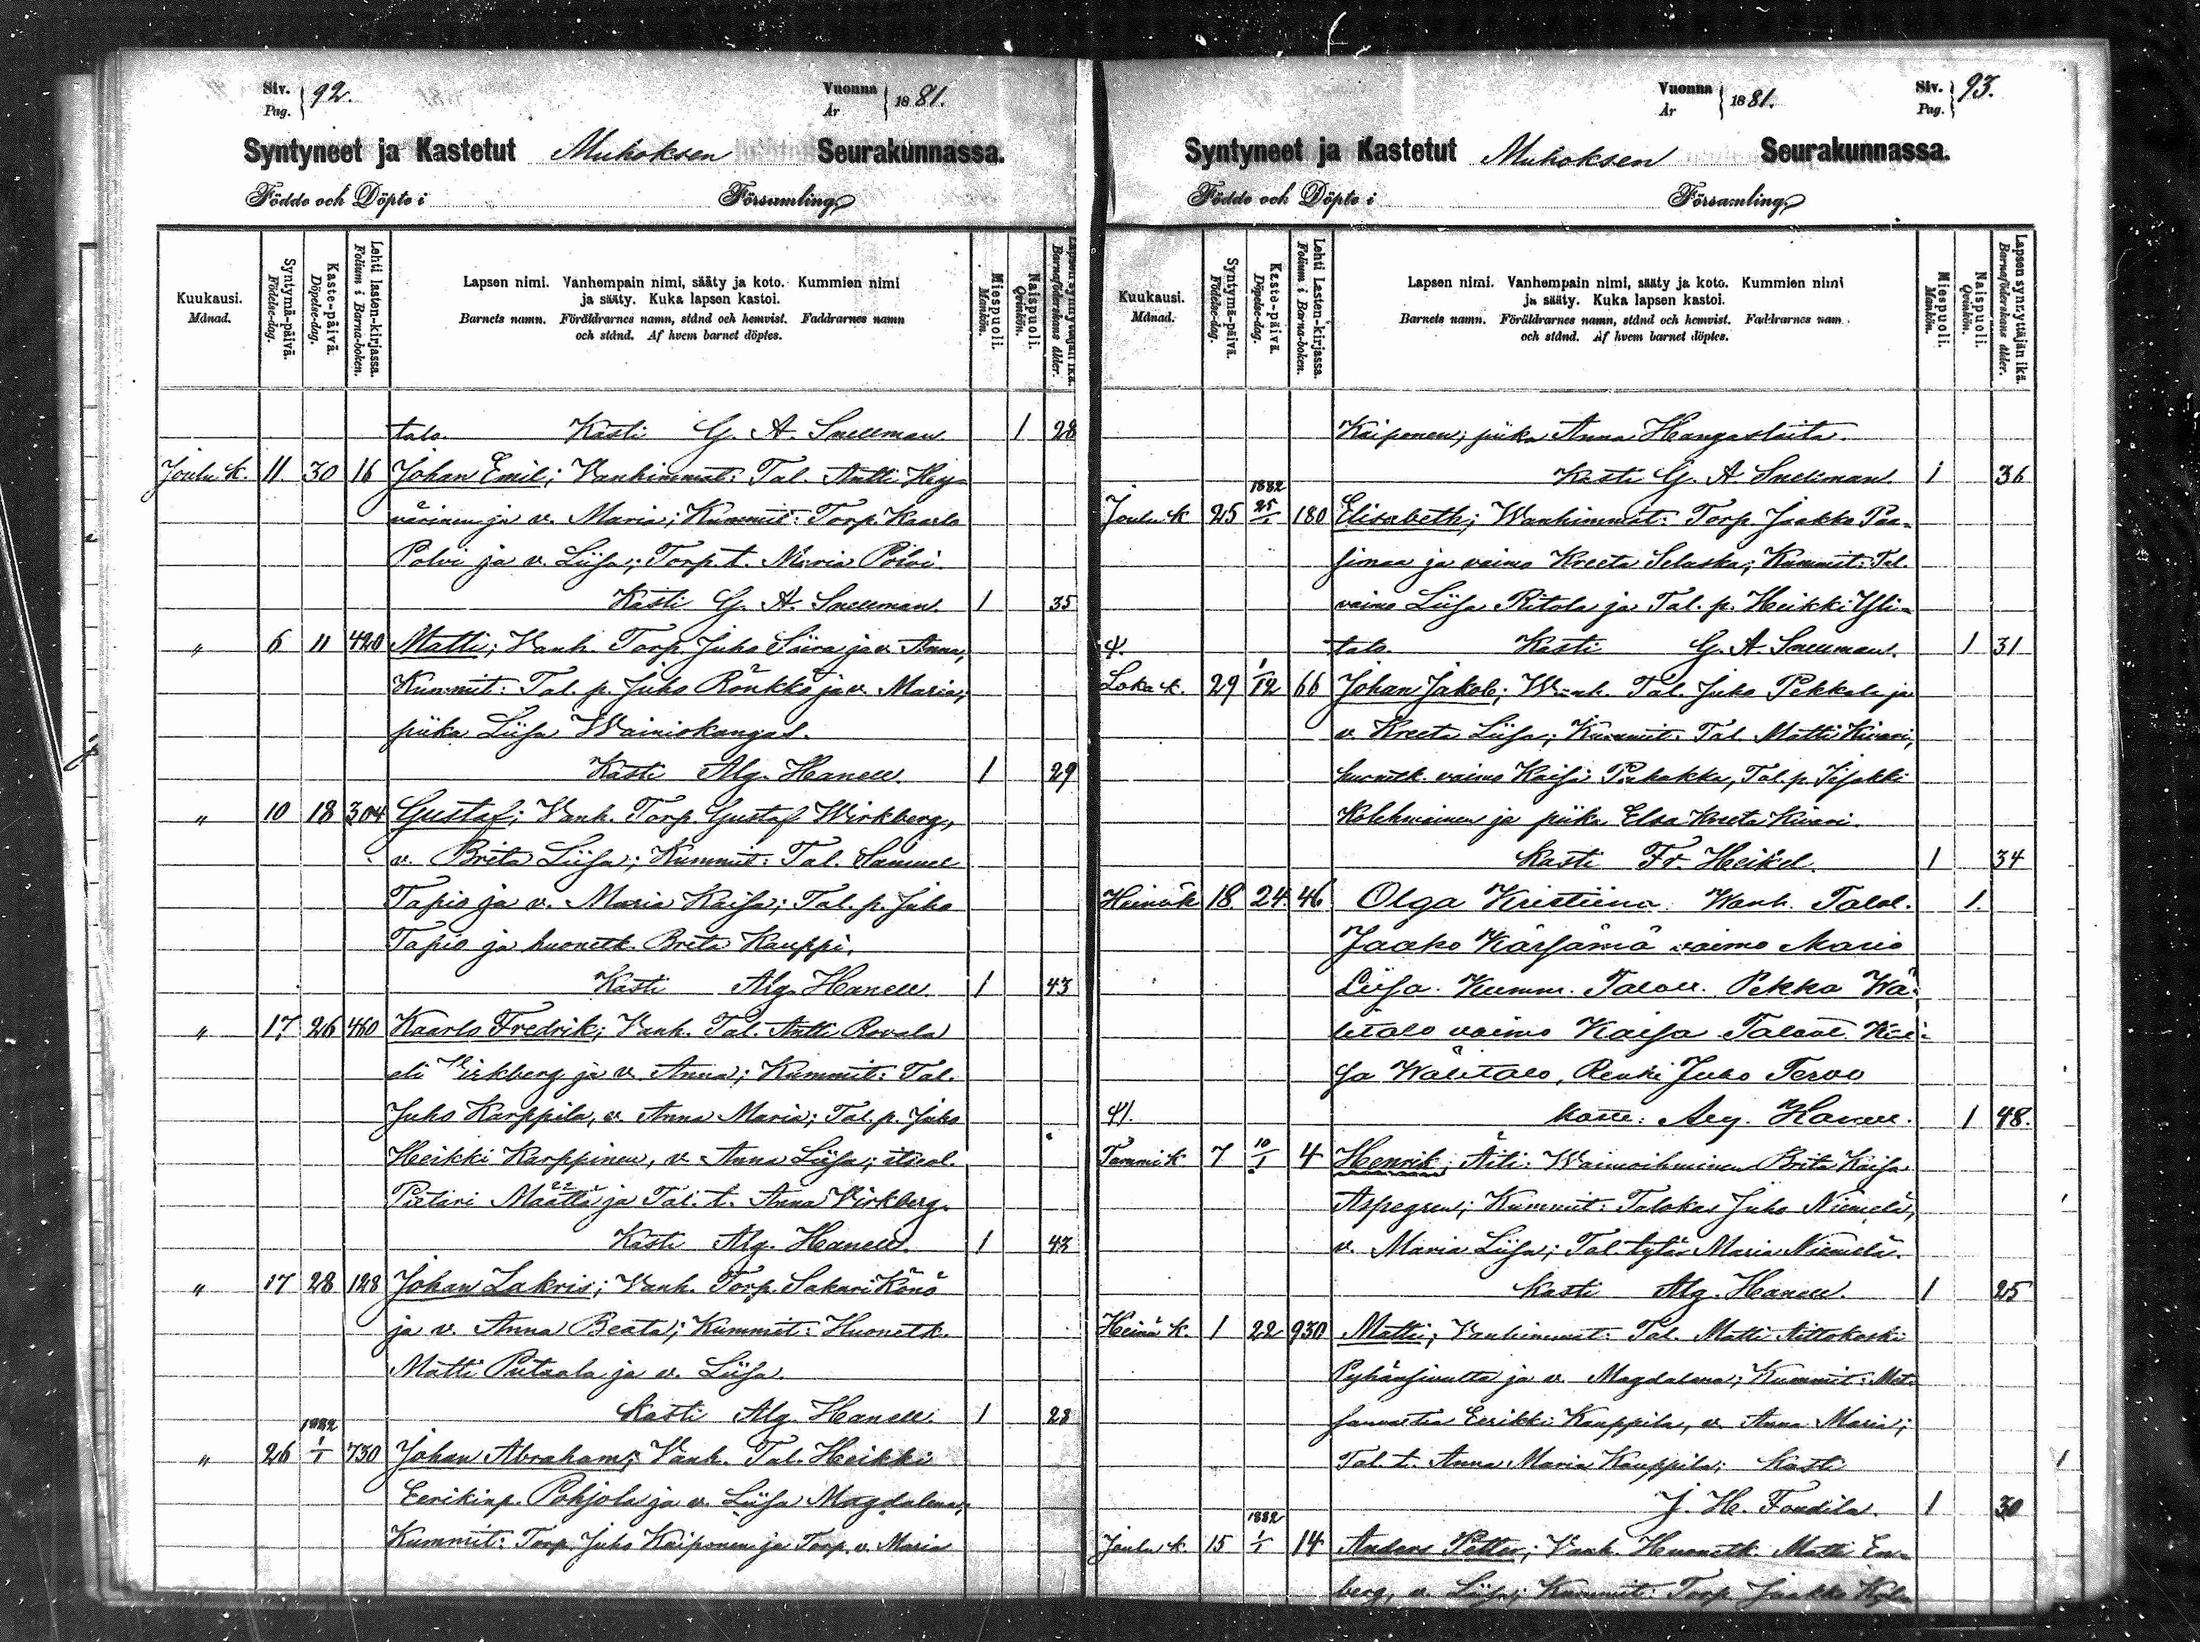 Siv. Pag. 92.
Vuonna År 1881.
Syntyneet ja Kastetut Muhoksen Seurakunnassa.
Födde och Döpte i Församling
Kuukausi. Månad.
Syntymä-päivä. Födelse-dag.
Kaste-päivä. Döpelse-dag.
Lehti lasten-kirjassa. Folium i Barna-boken.
Lapsen nimi. Vanhempain nimi, sääty ja koto. Kummien nimi
ja sääty. Kuka lapsen kastoi.
Barnets namn. Föräldrarnes namn, stånd och hemvist. Faddrarnes namn
och stånd. Af hvem barnet döptes.
Miespuoli. Mankön.
Naispuoli. Qvinkön.
Barnaföderskans ålder.
talo. Kasti G. A. Snellman 1 28
Joulu k. 11. 30 16 Johan Emil; Vanhimmat: Tal. Antti Hey-
värinen ja v. Maria; Kummit: Torp. Kaarlo
Polvi ja v. Liisa; Torp. t. Maria Polvi.
Kasti G. A. Snellman. 1 35
" 6 11 420 Matti; Vanh. Torp. Juho Siira ja v. Anna;
Kummit: Tal. p. Juho Rönkkö ja v. Maria;
piika Liisa Wainiokangas.
Kasti Alg. Hanell. 1 29
" 10 18 304 Gustaf; Vanh. Torp. Gustaf Wirkberg,
v. Brita Liisa; Kummit: Tal. Samuel
Tapio ja v. Maria Kaisa; Tal. p. Juho
Tapio ja huonetk. Brita Kauppi.
Kasti Alg. Hanell. 1 43
" 17 26 460 Kaarlo Fredrik; Vanh. Tal. Antti Rovala
eli Virkberg ja v. Anna; Kummit: Tal.
Juho Karppila, v. Anna Maria; Tal. p. Juho
Heikki Karppinen, v. Anna Liisa; itseol.
Pietari Määttä ja Tal. t. Anna Virkberg.
Kasti Alg. Hanell. 1 43
" 17 28 128 Johan Zakris; Vanh. Torp. Sakari Könö
ja v. Anna Beata; Kummit: Huonetk.
Matti Putaala ja v. Liisa.
Kasti Alg. Hanell. 1 28
1882
" 26 1/1 730 Johan Abraham; Vanh. Tal. Heikki
Eerikinp. Pohjola ja v. Liisa Magdalena;
Kummit: Torp. Juho Kaiponen ja Torp. v. Maria
Vuonna År 1881.
Siv. Pag. 93.
Syntyneet ja Kastetut Muhoksen Seurakunnassa.
Födde och Döpte i Församling
Kuukausi. Månad.
Syntymä-päivä. Födelse-dag.
Kaste-päivä. Döpelse-dag.
Lehti Lasten-kirjassa. Folium i Barna-boken.
Lapsen nimi. Vanhempain nimi, sääty ja koto. Kummien nimi
ja sääty. Kuka lapsen kastoi.
Barnets namn. Föräldrarnes namn, stånd och hemvist. Faddrarnes nam
och stånd. Af hvem barnet döptes.
Miespuoli. Mankön.
Naispuoli. Qvinkön.
Lapsen synnyttäjän ikä. Barnaföderskans ålder.
Kaiponen; piika Anna Hangaslaita.
Kasti G. A. Snellman. 1 36
1882
Joulu k. 25 25/1 180 Elisabeth; Wanhimmat: Torp. Jaakko Paa-
simaa ja vaimo Kreeta Seluska; Kummit: Tal.
vaimo Liisa Ritola ja Tal. p. Heikki Yli-
talo. Kasti G. A. Snellman. 1 31
Loka k. 29 1/12 66 Johan Jakob; Wanh. Tal. Juho Pekkala ja
v. Kreeta Liisa; Kummit: Tal. Matti Kivari,
huonetk. vaimo Kaisa Puhakka, Tal. p. Iisakki
Kolehmainen ja piika Elsa Kreeta Kivari.
Kasti Fr. Heikel. 1 34
Heinäk 18 24. 46 Olga Kristiina. Wanh. Talol. 1.
Jaako Kärsämä vaimo Maria
Liisa. Kumm. Taloll. Pekka Wä-
litalo vaimo Kaisa Talool.
sa Wälitalo, Renki Juho Tervo
Kasti: Alg. Hanell. 1 48.
Tammik 7 10/1 4 Henrik; Äiti: Waimoihminen Brita Kaisa
Aspegren; Kummit: Talokas Juho Niemelä,
v. Maria Liisa; Tal. tytär Maria Niemelä.
Kasti Alg. Hanell. 1 25
Heinä k. 1 22 930 Matti; Vanhimmat: Tal. Matti Aittokoski
Pyhänsivulta ja v. Magdalena; Kummit: Met-
sänvartia Eerikki Kauppila, v. Anna Maria;
Tal. t. Anna Maria Kauppila; Kasti
J. H. Fondila. 1 30
1882
Joulu k. 15 1/1 14 Anders Petter; Vanh. Huonetk. Matti En-
berg, v. Liisa; Kummit: Torp. Jaakko Kyl-